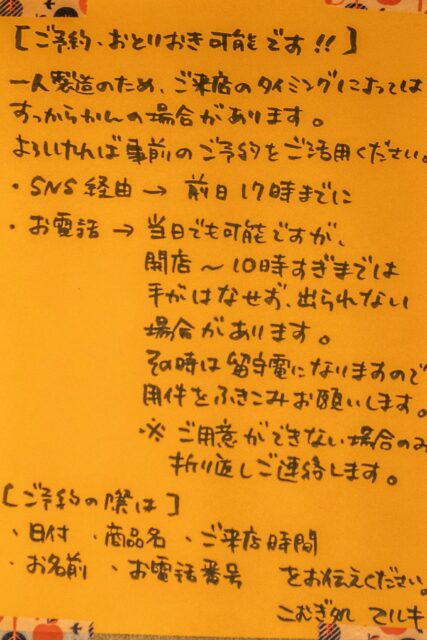 [ご予約、おとりおき可能です!!]
一人製造のため、ご来店のタイミングによっては
すっからかんの場合があります。
よろしければ事前のご予約をご活用ください。
・SNS経由→ 前日17時までに
・お電話→ 当日でも可能ですが、
開店〜10時すぎまでは
手がはなせず、出られない
場合があります。
その時は留守電になりますので
用件をふきこみお願いします。
※ご用意ができない場合のみ
折り返しご連絡します。
[ご予約の際は]
・日付 ・商品名 ・ご来店時間
・お名前 ・お電話番号 をお伝えください。
こむぎ処 てルキ